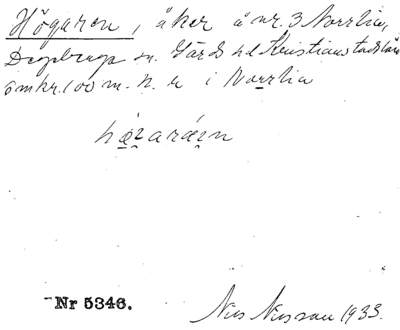 Högaren, åker å nr. 3 Norrlia,
Degeberga sn. Gärds hd Kristianstads län
omkr. 100 m. n. v. i Norrlia
Nr 5346.
Nils Nilsson 1933.